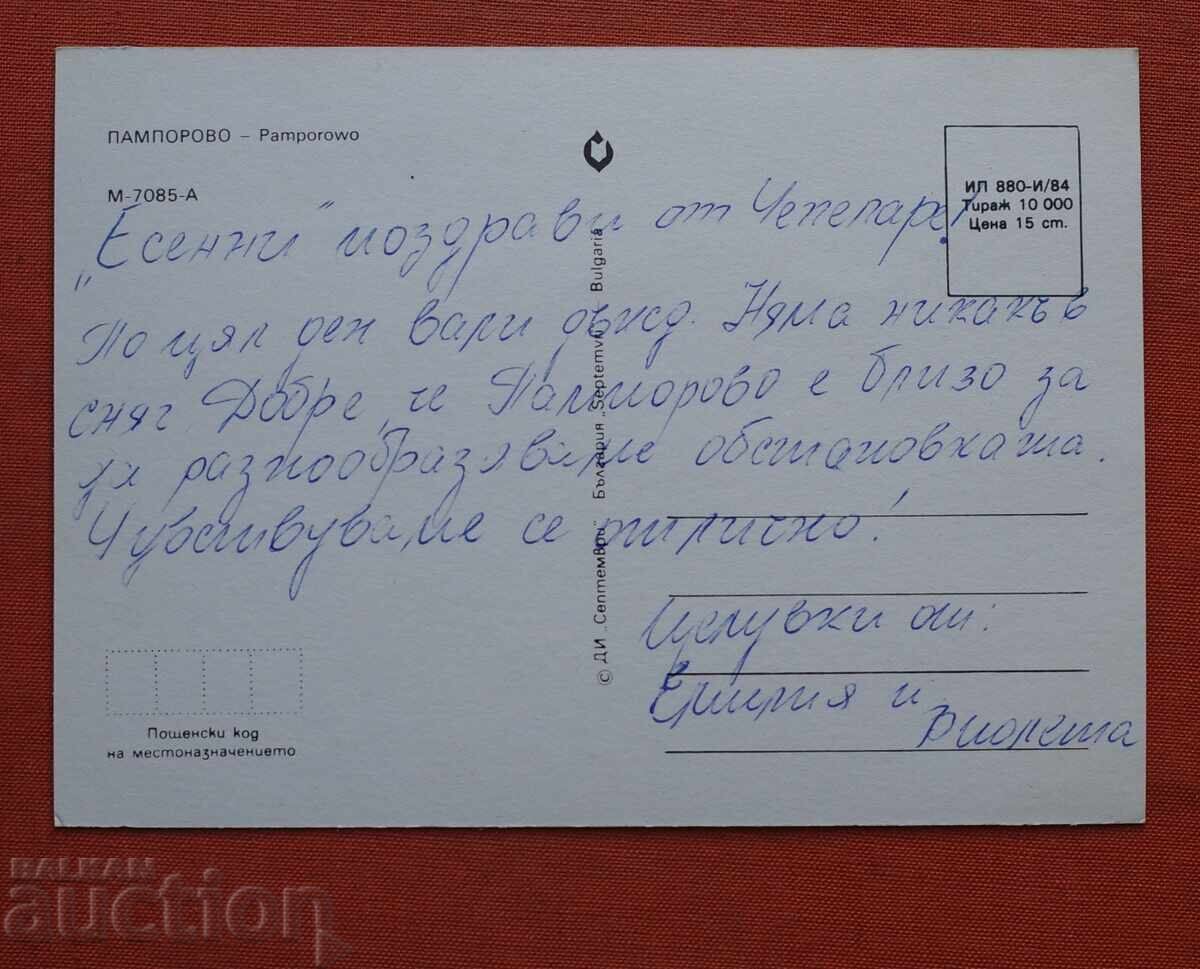 ПАМПОРОВО – Pamporowo
М-7085-А
ИЛ 880-И/84
Тираж 10 000
Цена 15 ст.
„Есенни" поздрави от Чепеларе!
По цял ден вали дъжд. Няма никакъв
сняг. Добре, че Пампорово е близо за
да разнообразяваме обстановката.
Чувствуваме се отлично!
Целувки от:
Емилия и
Виолета
© ДИ „Септември" България „Septemvri" Bulgaria
Пощенски код
на местоназначението
BALKAN
auction